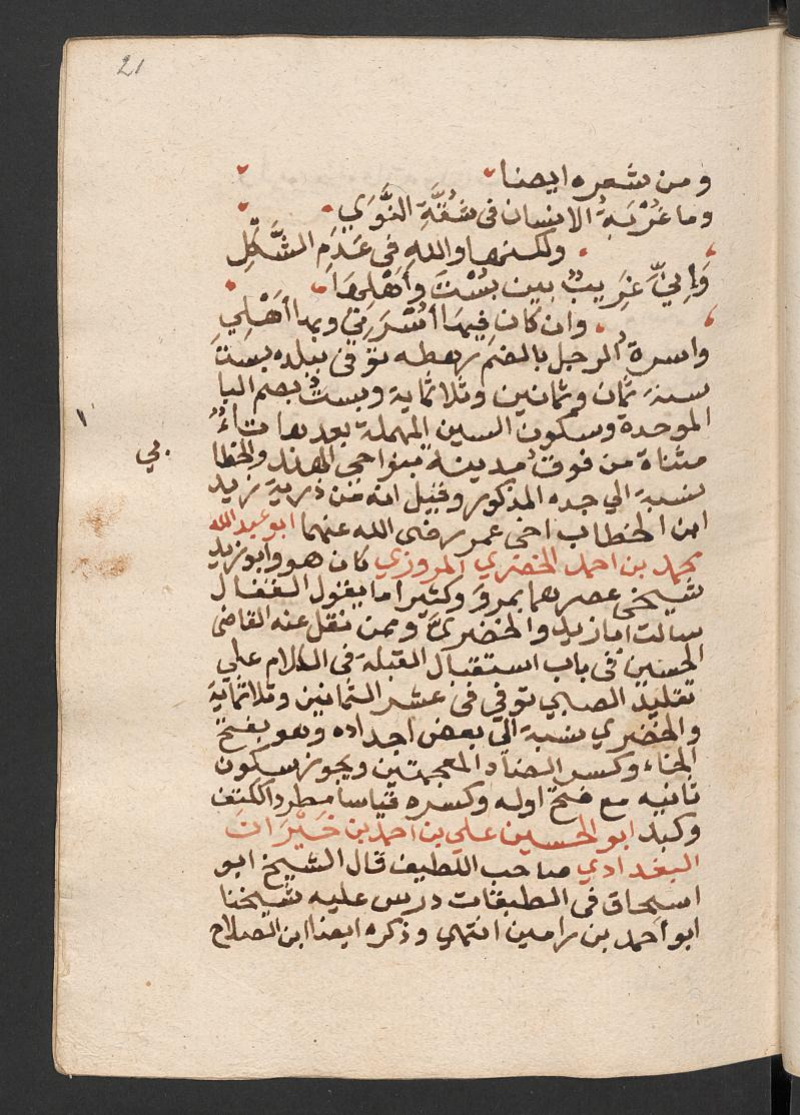 21
ومن شعره ايضا
وما غُرْبَةُ الانسان في شُقَّةِ النَّوَي
ولكنها والله في عَدَمِ الشَّكْلِ
وَإِنِّي غَرِيبٌ بين بُسْتَ وأَهْلِهَا
وان كان فيها أُسْرَتي وبها أَهْلِي
واسرة الرجل بالضم رهطه توفى ببلده بست
سنة ثمان وثمانين وثلاثماية وبستُ بضم البا
الموحدة وسكون السين المهملة بعدها تاءٌ
مثناة من فوق مدينة بنواحي الهند والخطا
بي
نسبة الي جده المذكور وقيل انه من ذرية زيد
ابن الخطاب اخي عمر رضى الله عنهما ابو عبد الله
محمد بن احمد الخضري المروزي كان هو وابو زيد
شيخى عصرهما بمروَ وكثيرا ما يقول القفال
سالت ابا زيد والخضريَّ وممن نقل عنه القاضى
الحسين في باب استقبال القبلة في الكلام علي
تقليد الصبي توفي في عشر الثمانين وثلاثماية
والخضري نسبة الى بعض اجداده وهو بفتح
الخاء وكسر الضاد المعجمتين ويجوز سكون
ثانيه مع فتح اوله وكسره قياسا مطردا ككتف
وكبد ابو الحسين علي بن احمد بن خَيْرَان
البغدادي صاحب اللطيف قال الشيخ ابو
اسحاق في الطبقات درس عليه شيخنا
ابو احمد بن رامين انتهي وذكره ايضا ابن الصلاح